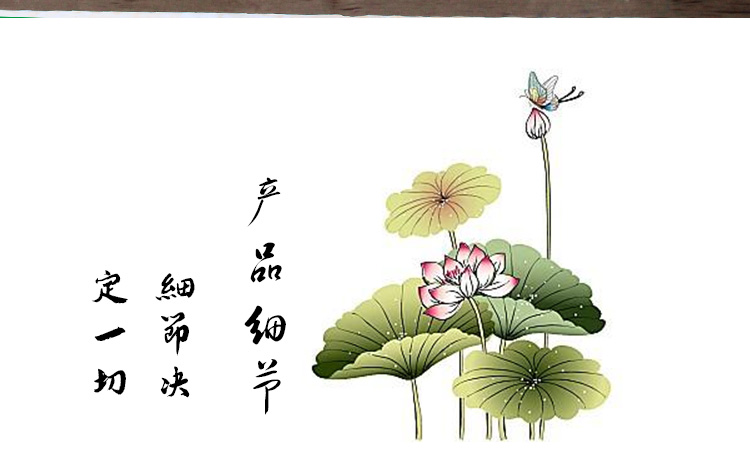 产品细节
細節决
定一切